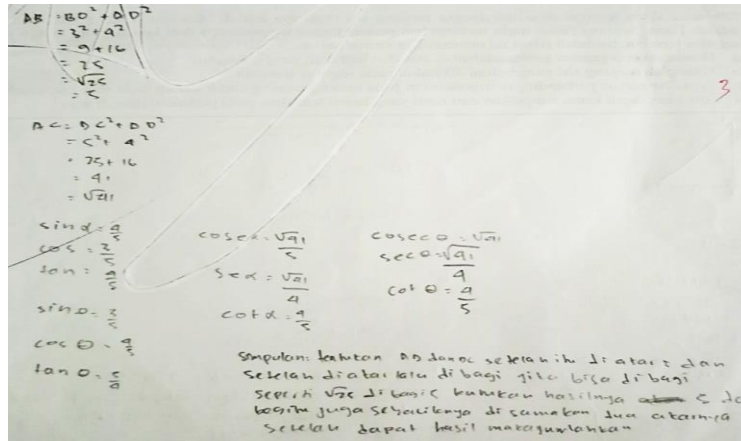 AB = BD² + AD²
= 3² + 4²
= 9 + 16
= 25
= √25
= 5
3
AC = DC² + AD²
= 5² + 4²
= 25 + 16
= 41
= √41
sin α = 4/5
cos = 3/5
tan = 4/5
sin θ = 3/5
cos θ = 4/5
tan θ = 5/4
cosec α = √41/5
sec α = √41/4
cot α = 4/5
cosec θ = √41
sec θ = √41/4
cot θ = 4/5
simpulan: tentukan AD dan DC setelah itu di atar : dan
setelah diatar lalu di bagi jika bisa di bagi
seperti √25 di bagi 5 hasilnya 5
begitu juga sebaliknya di samakan dua akarnya
setelah dapat hasil